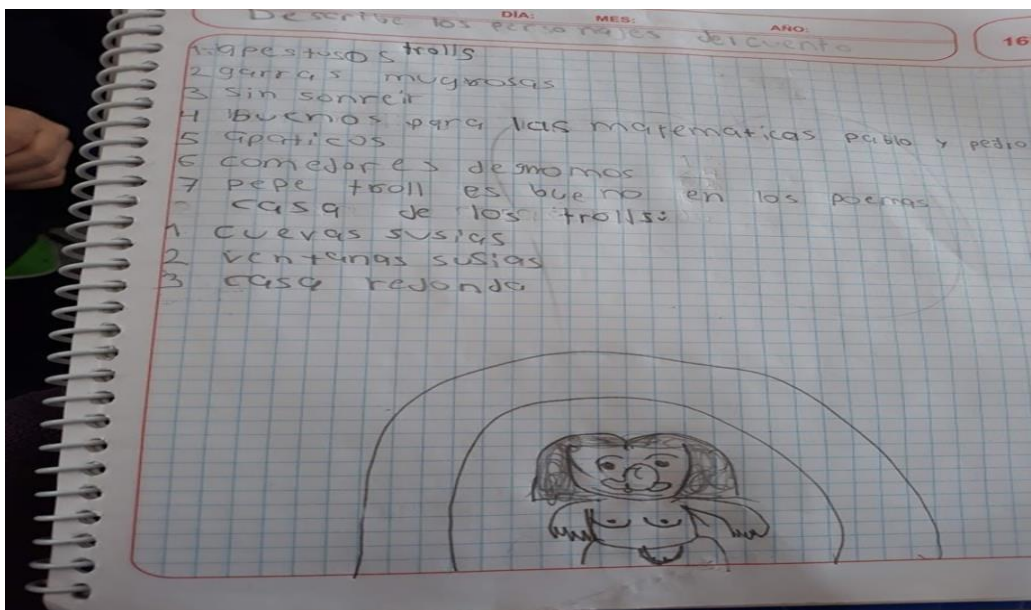 DIA: MES: AÑO:
16
Describe los personajes del cuento
1-apestusos trolls
2 garras mugrosas
3 sin sonreir
4 Buenos para las matematicas pablo y pedro
5 apaticos
6 comedores de momos
7 pepe troll es bueno en los poemas
casa de los trolls:
1 cuevas susias
2 ventanas susias
3 casa redonda